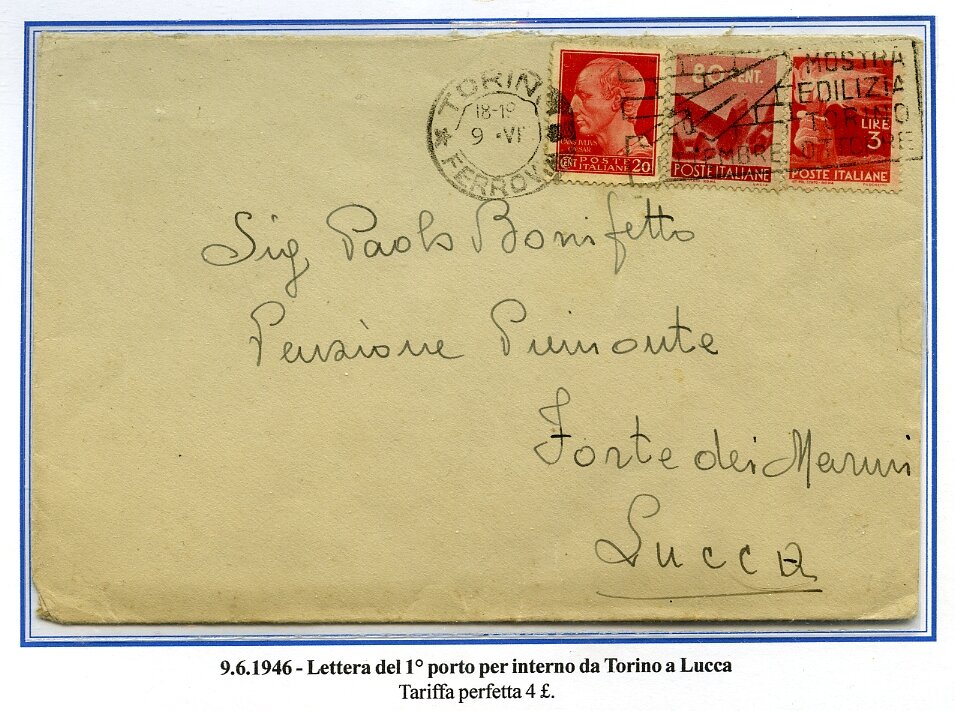 TORINO
18-19
9 · VI
FERROVIA
MOSTRA
EDILIZIA
TORINO
SETTEMBRE OTTOBRE
CAIVS IVLIVS
CAESAR
CENT POSTE
ITALIANE 20
80 CENT.
POSTE ITALIANE
LIRE
3
POSTE ITALIANE
Sig Paolo Bonifetto
Pensione Piemonte
Forte dei Marmi
Lucca
9.6.1946 - Lettera del 1° porto per interno da Torino a Lucca
Tariffa perfetta 4 £.